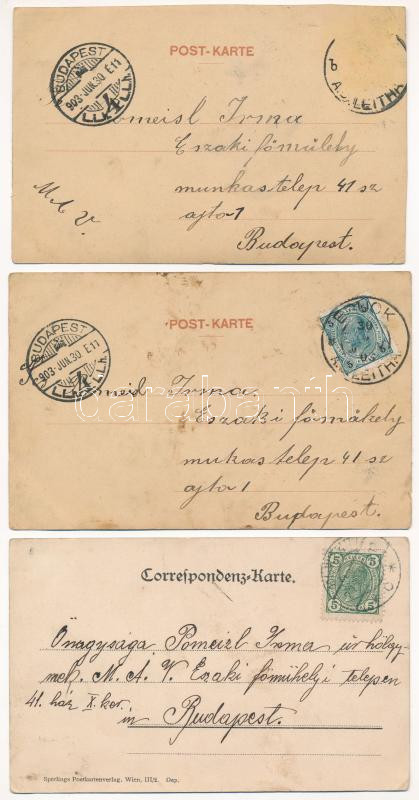 BUDAPEST
903·JUN.30 E11
4
POST-KARTE
b
A.D.LEITHA
Irma
Eszaki fömühely
munkastelep 41 sz
ajto 1
Budapest.
BUDAPEST
903·JUN.30 E11
4
POST-KARTE
BRUCK
30
LEITHA
Irma
Északi fömühely
mukastelep 41 sz
ajta 1
Budapest.
darabanth
Correspondenz-Karte.
5 5
Önagysága Pomeizl Irma úrhölgy-
nek. M. A. V. Eszaki fömühelyi telepen
41. ház X. ker.
in Budapest.
Sperlings Postkartenverlag, Wien, III/2. Dep.